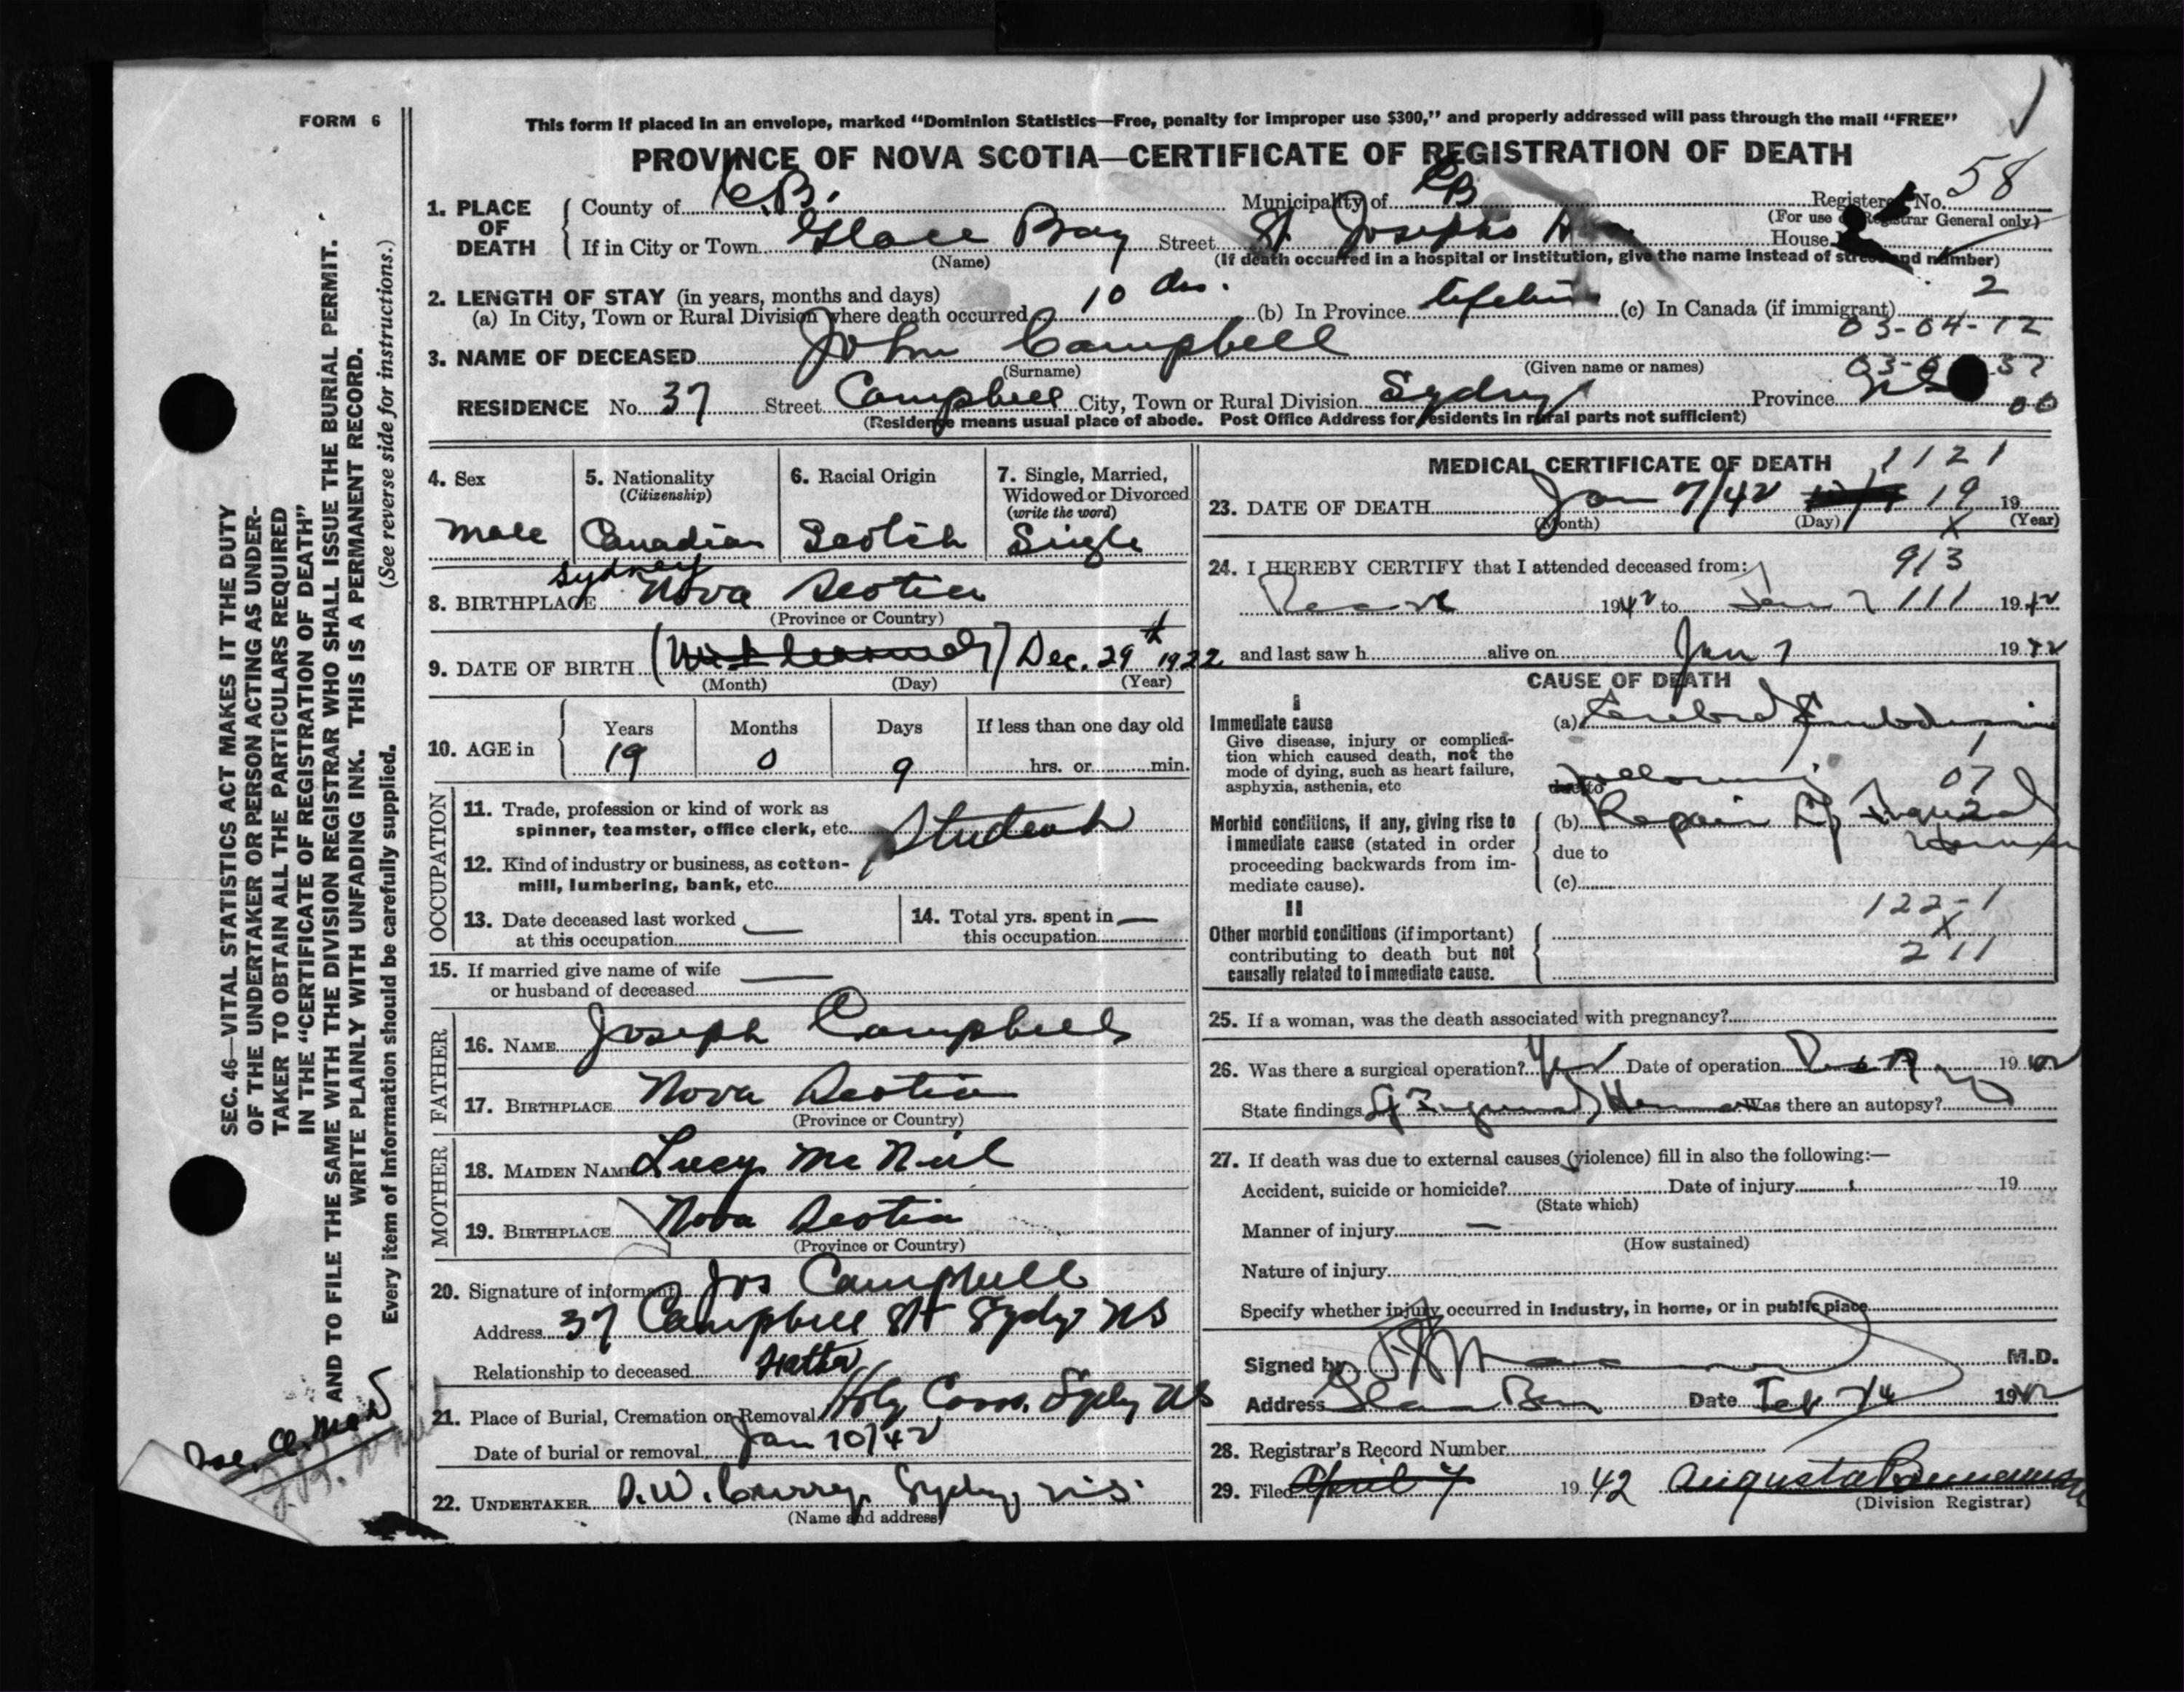 FORM 6
This form if placed in an envelope, marked "Dominion Statistics—Free, penalty for improper use $300," and properly addressed will pass through the mail "FREE"
PROVINCE OF NOVA SCOTIA—CERTIFICATE OF REGISTRATION OF DEATH
1. PLACE OF DEATH
County of C.B. Municipality of CB Registered No. 58
(For use of Registrar General only)
If in City or Town Glace Bay Street St Josephs House
(Name) (If death occurred in a hospital or institution, give the name instead of street and number)
2. LENGTH OF STAY (in years, months and days)
(a) In City, Town or Rural Division where death occurred 10 ds. (b) In Province lifetime (c) In Canada (if immigrant) 2
03-04-12
3. NAME OF DECEASED John Campbell
(Surname) (Given name or names)
RESIDENCE No. 37 Street Campbell City, Town or Rural Division Sydney Province NS 00
(Residence means usual place of abode. Post Office Address for residents in rural parts not sufficient)
4. Sex
male
5. Nationality
(Citizenship)
Canadian
6. Racial Origin
Scotch
7. Single, Married,
Widowed or Divorced
(write the word)
Single
8. BIRTHPLACE Sydney Nova Scotia
(Province or Country)
9. DATE OF BIRTH Dec. 29th 1922
(Month) (Day) (Year)
10. AGE in
Years Months Days If less than one day old
19 0 9 hrs. or min.
OCCUPATION
11. Trade, profession or kind of work as
spinner, teamster, office clerk, etc. Student
12. Kind of industry or business, as cotton-
mill, lumbering, bank, etc.
13. Date deceased last worked —
at this occupation
14. Total yrs. spent in —
this occupation
15. If married give name of wife —
or husband of deceased
FATHER
16. NAME Joseph Campbell
17. BIRTHPLACE Nova Scotia
(Province or Country)
MOTHER
18. MAIDEN NAME Lucy McNeil
19. BIRTHPLACE Nova Scotia
(Province or Country)
20. Signature of informant Jos Campbell
Address 37 Campbell St Sydney NS
Relationship to deceased Father
21. Place of Burial, Cremation or Removal Holy Cross, Sydney NS
Date of burial or removal Jan 10/42
22. UNDERTAKER D.W. Curry, Sydney, N.S.
(Name and address)
MEDICAL CERTIFICATE OF DEATH 1121
23. DATE OF DEATH Jan 7/42 19 19
(Month) (Day) (Year)
X
24. I HEREBY CERTIFY that I attended deceased from: 913
1942 to Jan 7 111 1942
and last saw h alive on Jan 7 1942
CAUSE OF DEATH
I
Immediate cause
Give disease, injury or complica-
tion which caused death, not the
mode of dying, such as heart failure,
asphyxia, asthenia, etc
(a) Cerebral Embolism
1
due to following 07
Morbid conditions, if any, giving rise to
immediate cause (stated in order
proceeding backwards from im-
mediate cause).
(b) Repair of Inguinal Hernia
2
due to
(c)
122-1
II
Other morbid conditions (if important)
contributing to death but not
causally related to immediate cause.
X
211
25. If a woman, was the death associated with pregnancy?
26. Was there a surgical operation? Yes Date of operation 1942
State findings Inguinal Hernia Was there an autopsy? no
27. If death was due to external causes (violence) fill in also the following:—
Accident, suicide or homicide? Date of injury 19
(State which)
Manner of injury —
(How sustained)
Nature of injury
Specify whether injury occurred in industry, in home, or in public place
Signed by M.D.
Address Glace Bay Date Feb 1942
28. Registrar's Record Number
29. Filed April 7 1942 Augusta
(Division Registrar)
SEC. 46—VITAL STATISTICS ACT MAKES IT THE DUTY
OF THE UNDERTAKER OR PERSON ACTING AS UNDER-
TAKER TO OBTAIN ALL THE PARTICULARS REQUIRED
IN THE "CERTIFICATE OF REGISTRATION OF DEATH"
AND TO FILE THE SAME WITH THE DIVISION REGISTRAR WHO SHALL ISSUE THE BURIAL PERMIT.
WRITE PLAINLY WITH UNFADING INK. THIS IS A PERMANENT RECORD.
Every item of information should be carefully supplied. (See reverse side for instructions.)